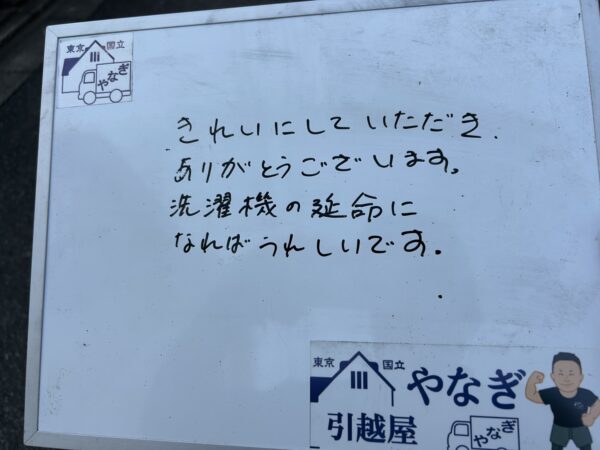 東京 国立
やなぎ
きれいにしていただき、
ありがとうございます。
洗濯機の延命に
なればうれしいです。
東京 国立
やなぎ
引越屋
やなぎ